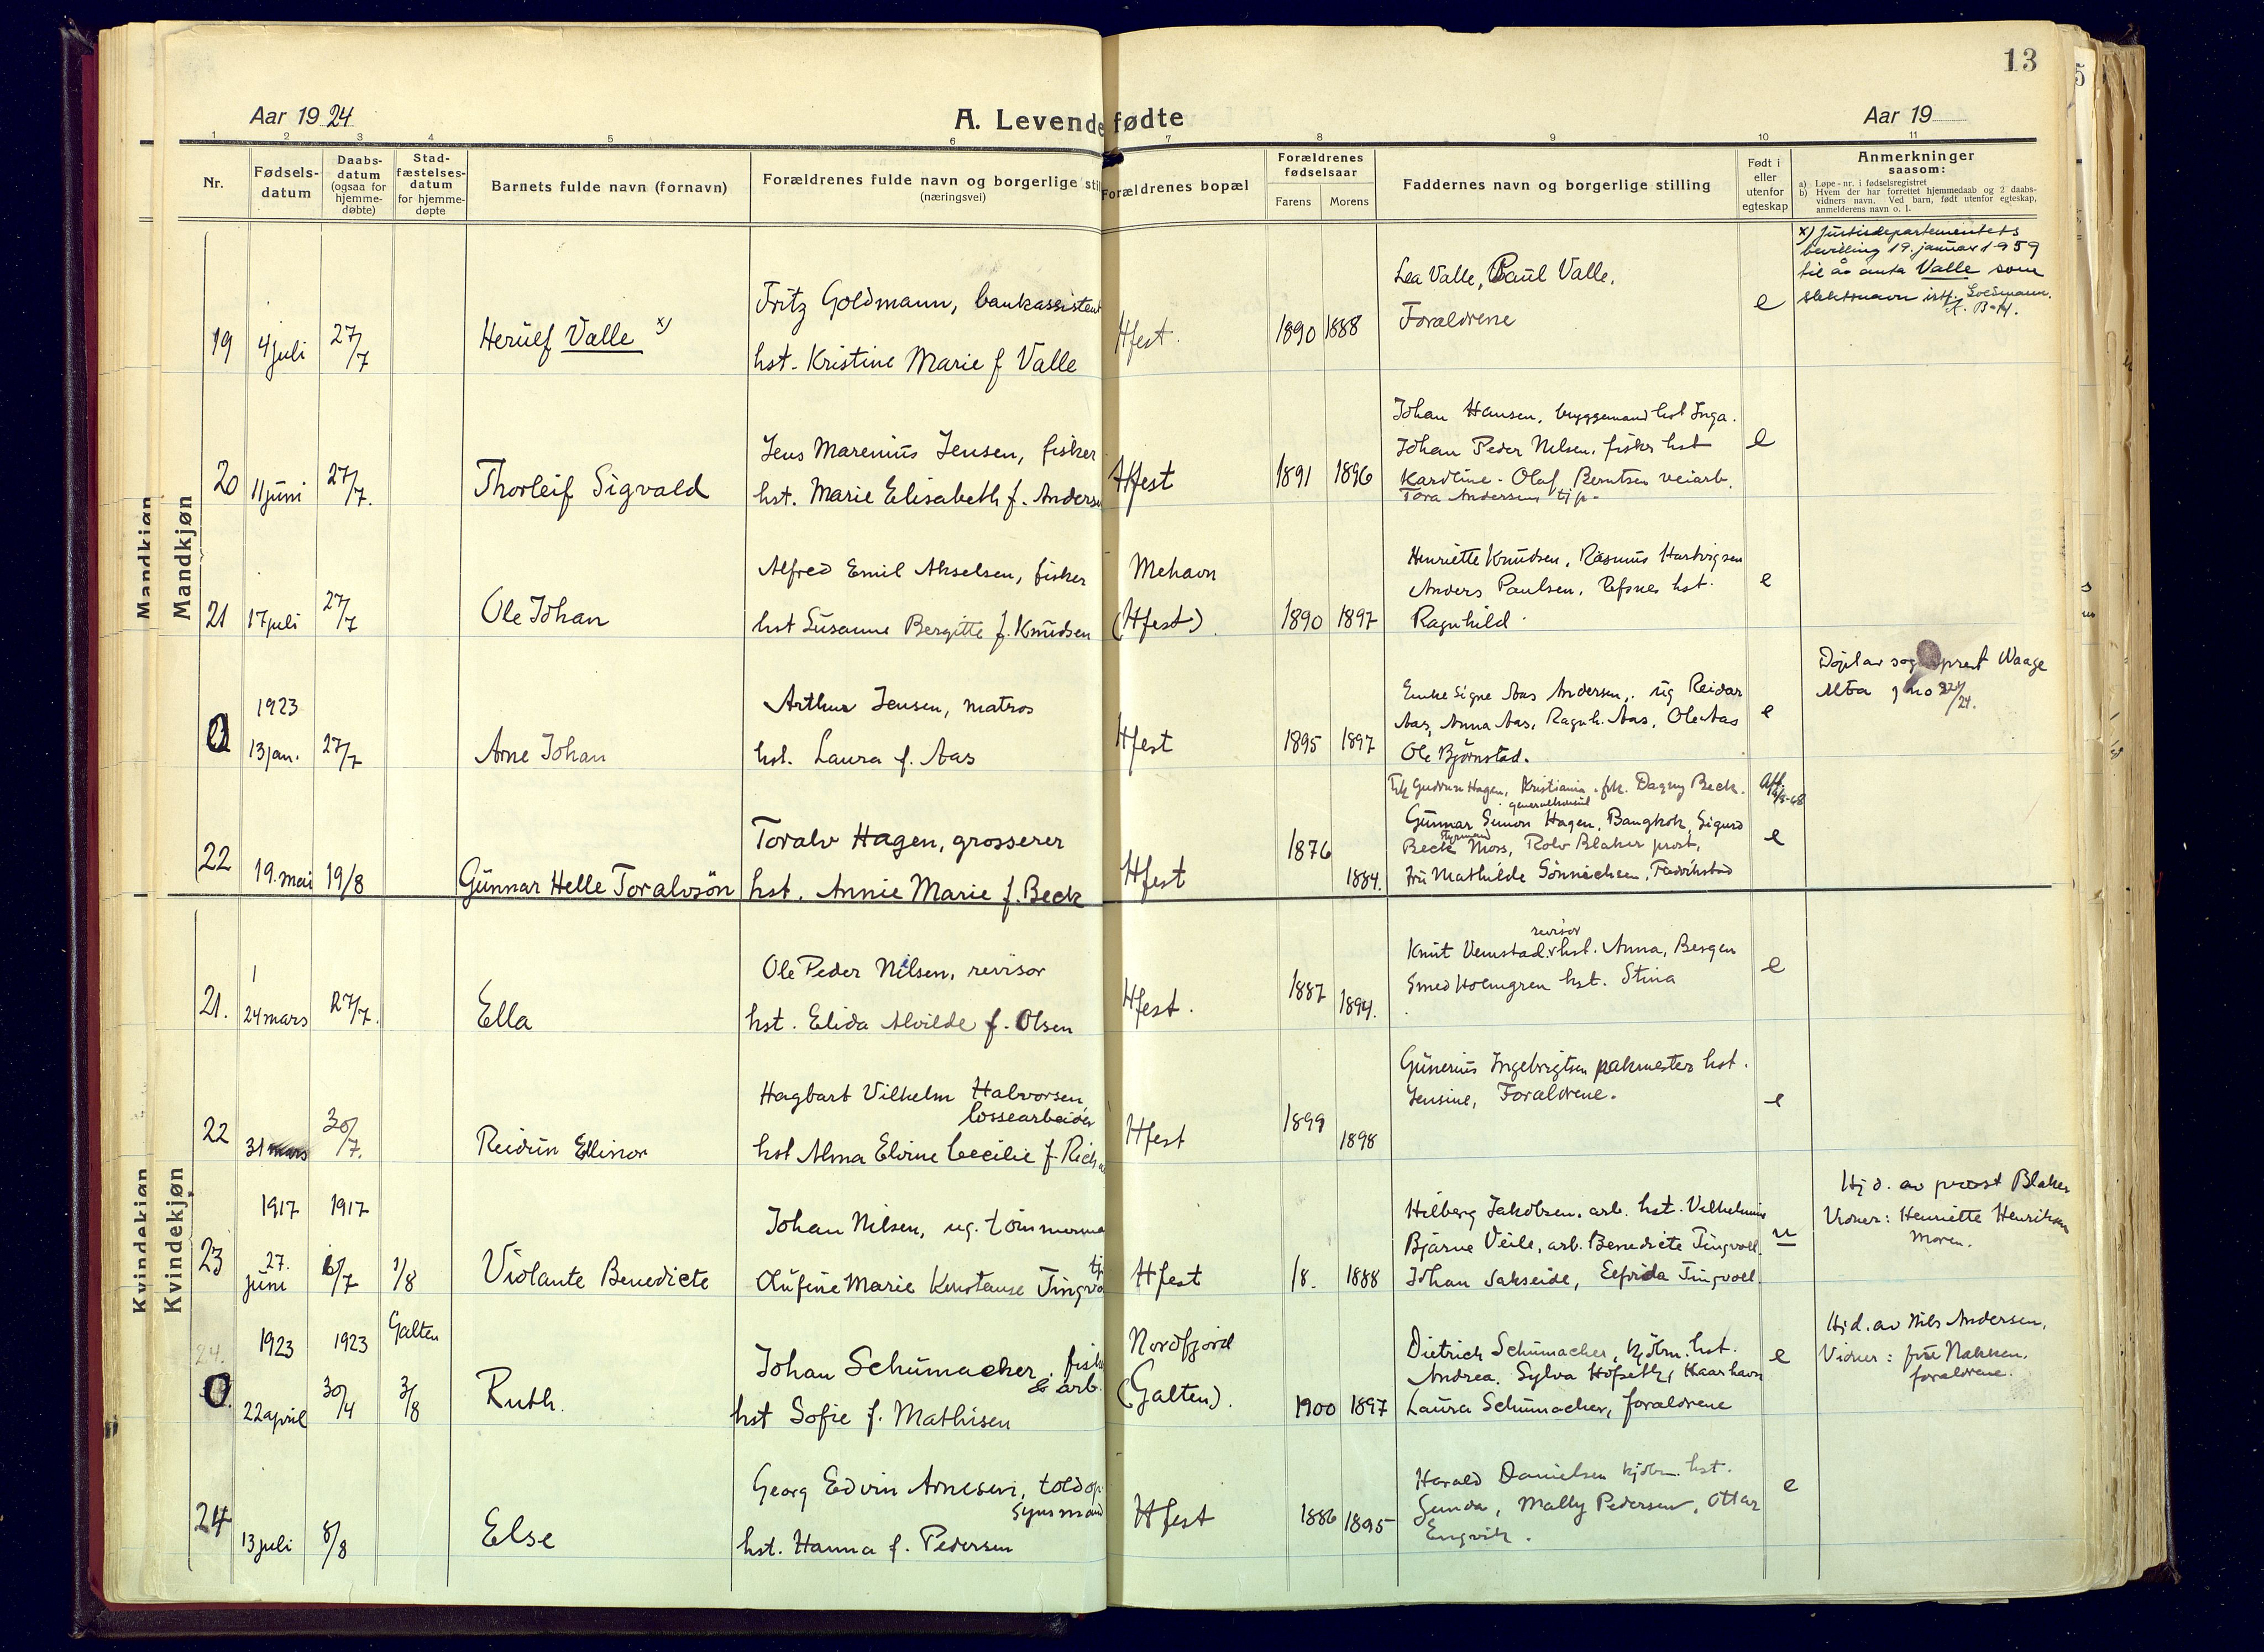 13
Aar 1924
A. Levende fødte
Aar 19
1 2 3 4 5 6 7 8 9 10 11
Nr.
Fødsels-
datum
Daabs-
datum
(ogsaa for
hjemme-
døbte)
Stad-
fæstelses-
datum
for hjemme-
døpte
Barnets fulde navn (fornavn)
Forældrenes fulde navn og borgerlige sti
(næringsvei)
Forældrenes bopæl
Forældrenes
fødselsaar
Farens Morens
Faddernes navn og borgerlige stilling
Født i
eller
utenfor
egteskap
Anmerkninger
saasom:
a) Løpe-nr. i fødselsregistret
b) Hvem der har forrettet hjemmedaab og 2 daabs-
vidners navn. Ved barn, født utenfor egteskap,
anmelderens navn o. l.
Mandkjøn
Mandkjøn
19 4 juli 27/7
Heruef Valle x)
Fritz Goldmann, bankassistent
hst. Kristine Marie f Valle
Hfest.
1890 1888
Lea Valle, Paul Valle.
Forældrene
e
x) Justisdepartementets
bevilling 19. januar 1959
til å anta Valle som
slektsnavn istf. Goldmann.
20 11 juni 27/7.
Thorleif Sigvald
Jens Marenius Jensen, fisker
hst. Marie Elisabeth f. Anderse
Hfest
1891 1896
Johan Hansen, bryggemand hst Inga.
Johan Peder Nilsen, fisker hst
Karoline - Olaf Berntsen veiarb.
Tora Andersen tjp.
e
21 17 juli 27/7
Ole Johan
Alfred Emil Akselsen, fisker
hst Susanne Bergitte f. Knudsen
Mehavn
(Hfest).
1890 1897
Henriette Knudsen, Rasmus Hartvigsen
Anders Paulsen, Refsnes hst.
Ragnhild.
e
0 1923
13 jan. 27/7
Arne Johan
Arthur Jensen, matros
hst. Laura f. Aas
Hfest
1895 1897
Enke Signe Aas Andersen, ug Reidar
Aas, Anna Aas, Ragnh. Aas, Ole Aas
Ole Bjørnstad.
e
Døpt av sogneprest Waage
Alta
22 19. mai 19/8
Gunnar Helle Toralvsön
Toralv Hagen, grosserer
hst. Annie Marie f. Beck
Hfest
1876
1884.
Frk Gudrun Hagen, Kristiania, frk. Dagny Beck.
generalkonsul
Gunnar Simon Hagen, Bangkok, Sigurd
Styrmand
Beck Moss, Rolv Blaker prost,
fru Mathilde Sönnichsen, Fredrikstad
e
Kvindekjøn
Kvindekjøn
21. 24 mars 27/7.
Ella
Ole Peder Nilsen, revisor
hst. Elida Alvilde f. Olsen
Hfest.
1887
1894.
revisor
Knut Vemstad hst. Anna, Bergen
Smed Holmgren hst. Stina
e
22 31 mars 30/7.
Reidun Ellinor
Hagbart Vilhelm Halvorsen
lossearbeider
hst Alma Elvine Cecilie f. Rich
Hfest
1899
1898
Gunerius Ingebrigtsen pakmester hst.
Jensine, Forældrene.
e
23 1917 1917
27. juni 6/7 1/8
Violante Benedicte
Johan Nilsen, ug. tömmerma
Olufine Marie Konstanse Tingvo tj
Hfest
18. 1888
Hilberg Jakobsen, arb. hst. Vilhelmine
Bjarne Veile, arb. Benedicte Tingvoll.
Johan Sakseide, Elfrida Tingvoll.
u
Hjd. av prost Blaker
Vidner: Henriette Henriksen
Moren.
24.
0. 1923 1923 Galten
22 april 30/4 3/8
Ruth.
Johan Schumacher, fisk
& arb.
hst Sofie f. Mathisen
Nordfjord
(Galten).
1900 1897
Dietrich Schumacher, kjöbm. hst.
Andrea. Sylva Hofseth, Kaarhavn
Laura Schumacher, forældrene
e
Hjd. av Nils Andersen,
Vidner: fru Nakken,
forældrene.
24 13 juli 8/8
Else
Georg Edvin Arnesen, toldop
synsmand
hst. Hanna f. Pedersen
Hfest
1886 1895
Harald Danielsen kjöbm. hst.
Gunda, Mally Pedersen, Ottar
Engvik.
e